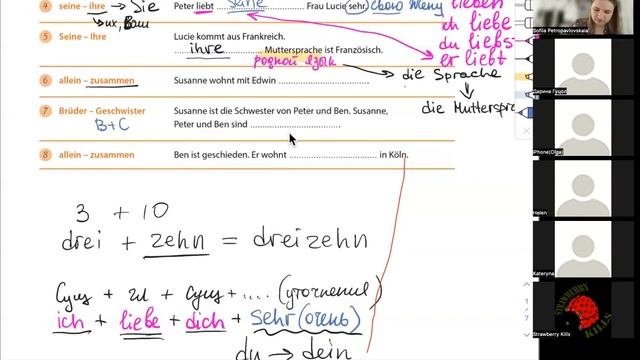 4 seine – ihre → Sie
их, Ваш
Peter liebt seine Frau Lucie sehr свою жену
lieben
ich liebe
du liebst
er liebt
5 Seine – Ihre
Lucie kommt aus Frankreich.
ihre Muttersprache ist Französisch.
родной язык
die Sprache
die Mutterspr
6 allein – zusammen
Susanne wohnt mit Edwin
7 Brüder – Geschwister
B+C
Susanne ist die Schwester von Peter und Ben. Susanne,
Peter und Ben sind
8 allein – zusammen
Ben ist geschieden. Er wohnt in Köln.
3 + 10
drei + zehn = dreizehn
Сущ + гл + сущ + .... (уточнение)
ich + liebe + dich + sehr (очень)
du → dein
Sofiia Petropavlovskaia
Дарина Гуцол
iPhone(Olga)
Helen
Kateryna
STRAWBERRY
KILLS
Strawberry Kills